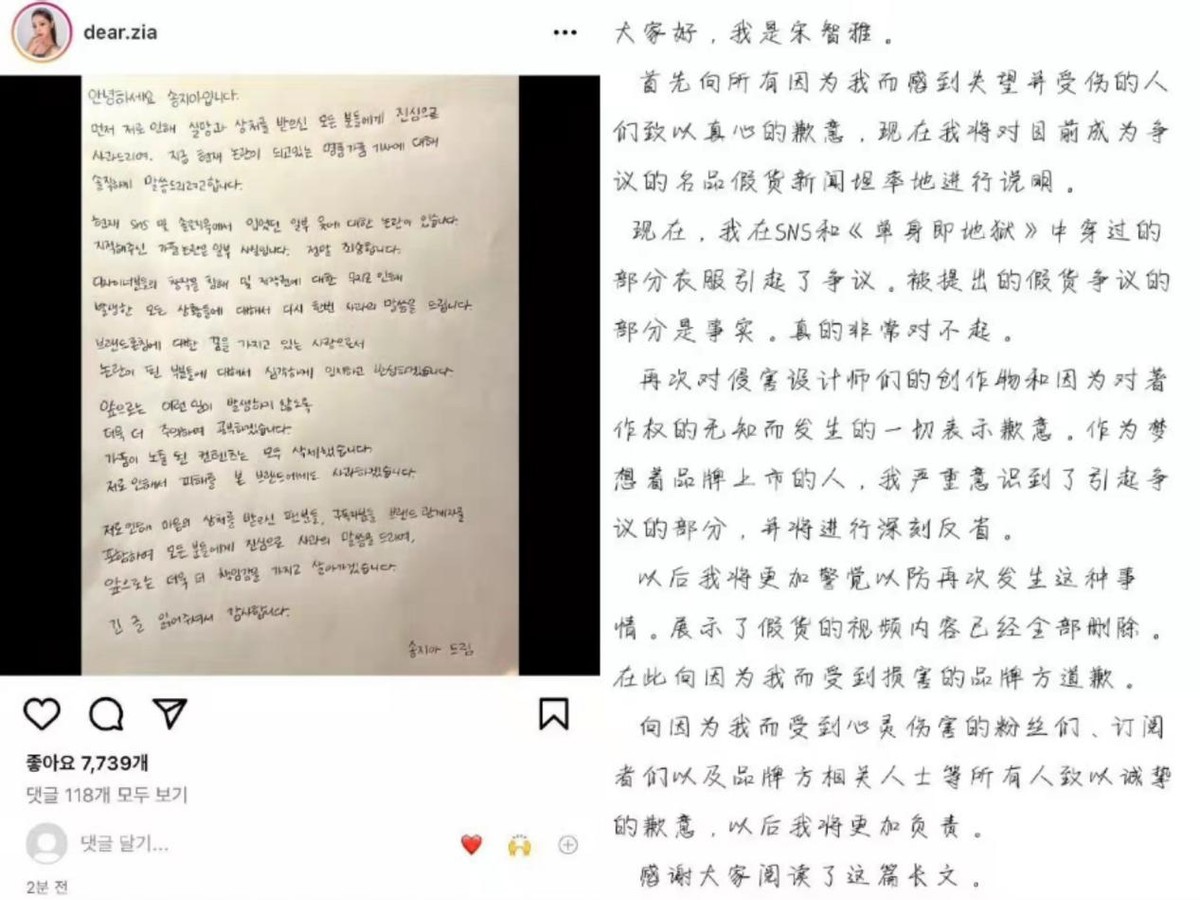 dear.zia
안녕하세요 송지아입니다.
먼저 저로 인해 실망과 상처를 받으신 모든 분들에게 진심으로
사과드리며, 지금 현재 논란이 되고있는 명품가품 기사에 대해
솔직하게 말씀드리려고합니다.
현재 SNS 및 솔로지옥에서 입었던 일부 옷에 대한 논란이 있습니다.
지적해주신 가품논란은 일부 사실입니다. 정말 죄송합니다.
디자이너분들의 창작물 침해 및 저작권에 대한 무지로 인해
발생한 모든 상황들에 대해서 다시 한번 사과의 말씀을 드립니다.
브랜드론칭에 대한 꿈을 가지고 있는 사람으로서
논란이 된 부분들에 대해서 심각하게 인지하고 반성하겠습니다.
앞으로는 이런 일이 발생하지 않도록
더욱 더 주의하며 공부하겠습니다.
가품이 노출 된 컨텐츠는 모두 삭제했습니다.
저로 인해서 피해를 본 브랜드에게도 사과하겠습니다.
저로인해 마음의 상처를 받으신 팬분들, 구독자님들 브랜드 관계자를
포함하여 모든 분들에게 진심으로 사과의 말씀을 드리며,
앞으로는 더욱 더 책임감을 가지고 살아가겠습니다.
긴 글 읽어주셔서 감사합니다.
송지아 드림
좋아요 7,739개
댓글 118개 모두 보기
댓글 달기...
2분 전
大家好，我是宋智雅。
首先向所有因为我而感到失望并受伤的人
们致以真心的歉意，现在我将对目前成为争
议的名品假货新闻坦率地进行说明。
现在，我在SNS和《单身即地狱》中穿过的
部分衣服引起了争议。被提出的假货争议的
部分是事实。真的非常对不起。
再次对侵害设计师们的创作物和因为对著
作权的无知而发生的一切表示歉意。作为梦
想着品牌上市的人，我严重意识到了引起争
议的部分，并将进行深刻反省。
以后我将更加警觉以防再次发生这种事
情。展示了假货的视频内容已经全部删除。
在此向因为我而受到损害的品牌方道歉。
向因为我而受到心灵伤害的粉丝们、订阅
者们以及品牌方相关人士等所有人致以诚挚
的歉意，以后我将更加负责。
感谢大家阅读了这篇长文。